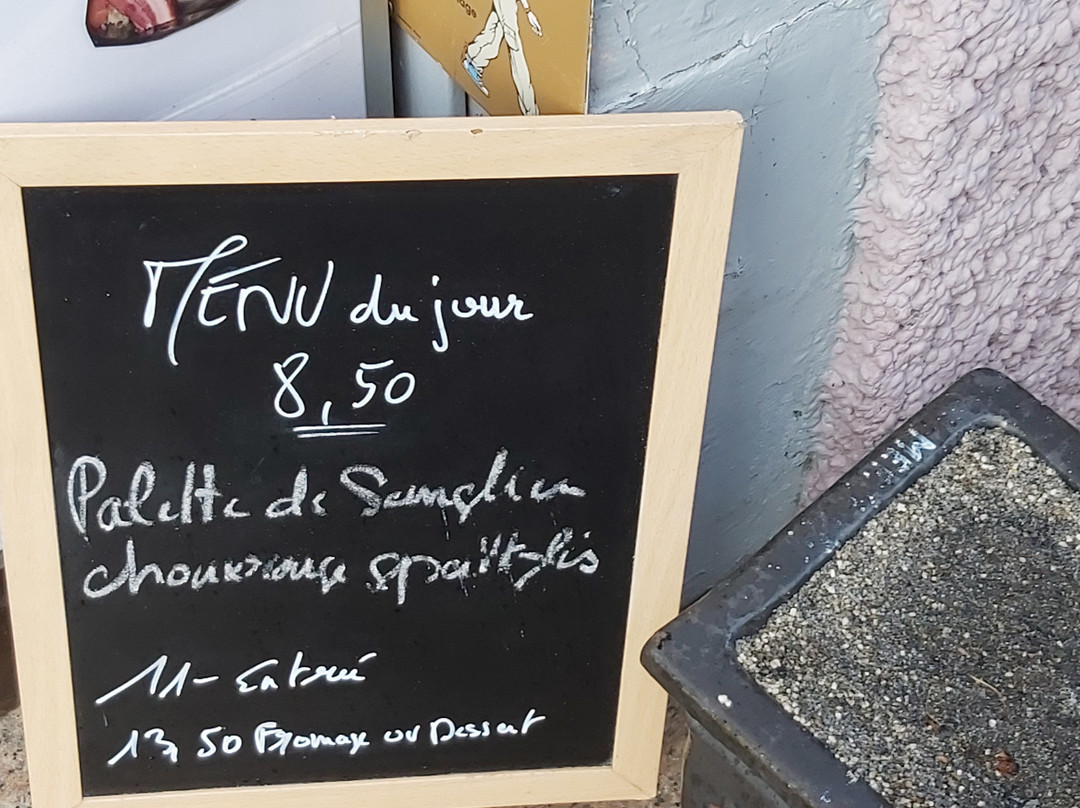 age
MENU du jour
8,50
Palette de Sanglier
chou rouge spaitzlis
11- Entrée
13,50 Fromage ou Dessert